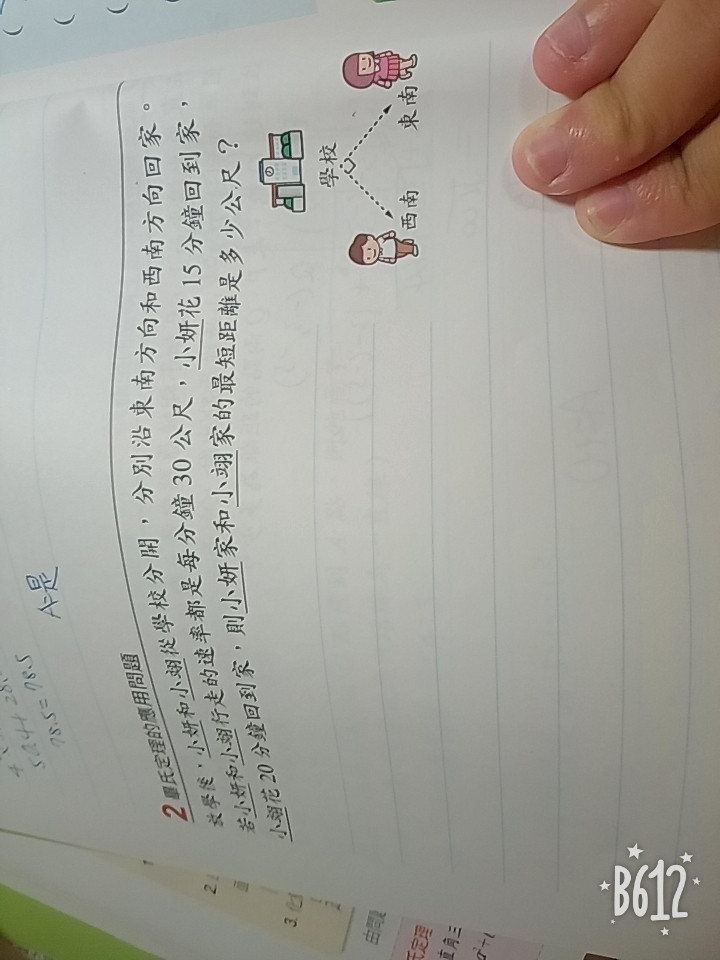 A=是
78.5=78.5
2 畢氏定理的應用問題
放學後，小妍和小翊從學校分開，分別沿東南方向和西南方向回家。
若小妍和小翊行走的速率都是每分鐘30公尺，小妍花15分鐘回到家，
小翊花20分鐘回到家，則小妍家和小翊家的最短距離是多少公尺？
學校
西南
東南
2.
3.
B612